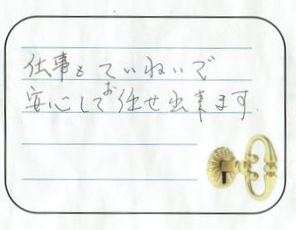 仕事もていねいで
安心してお任せ出来ます.